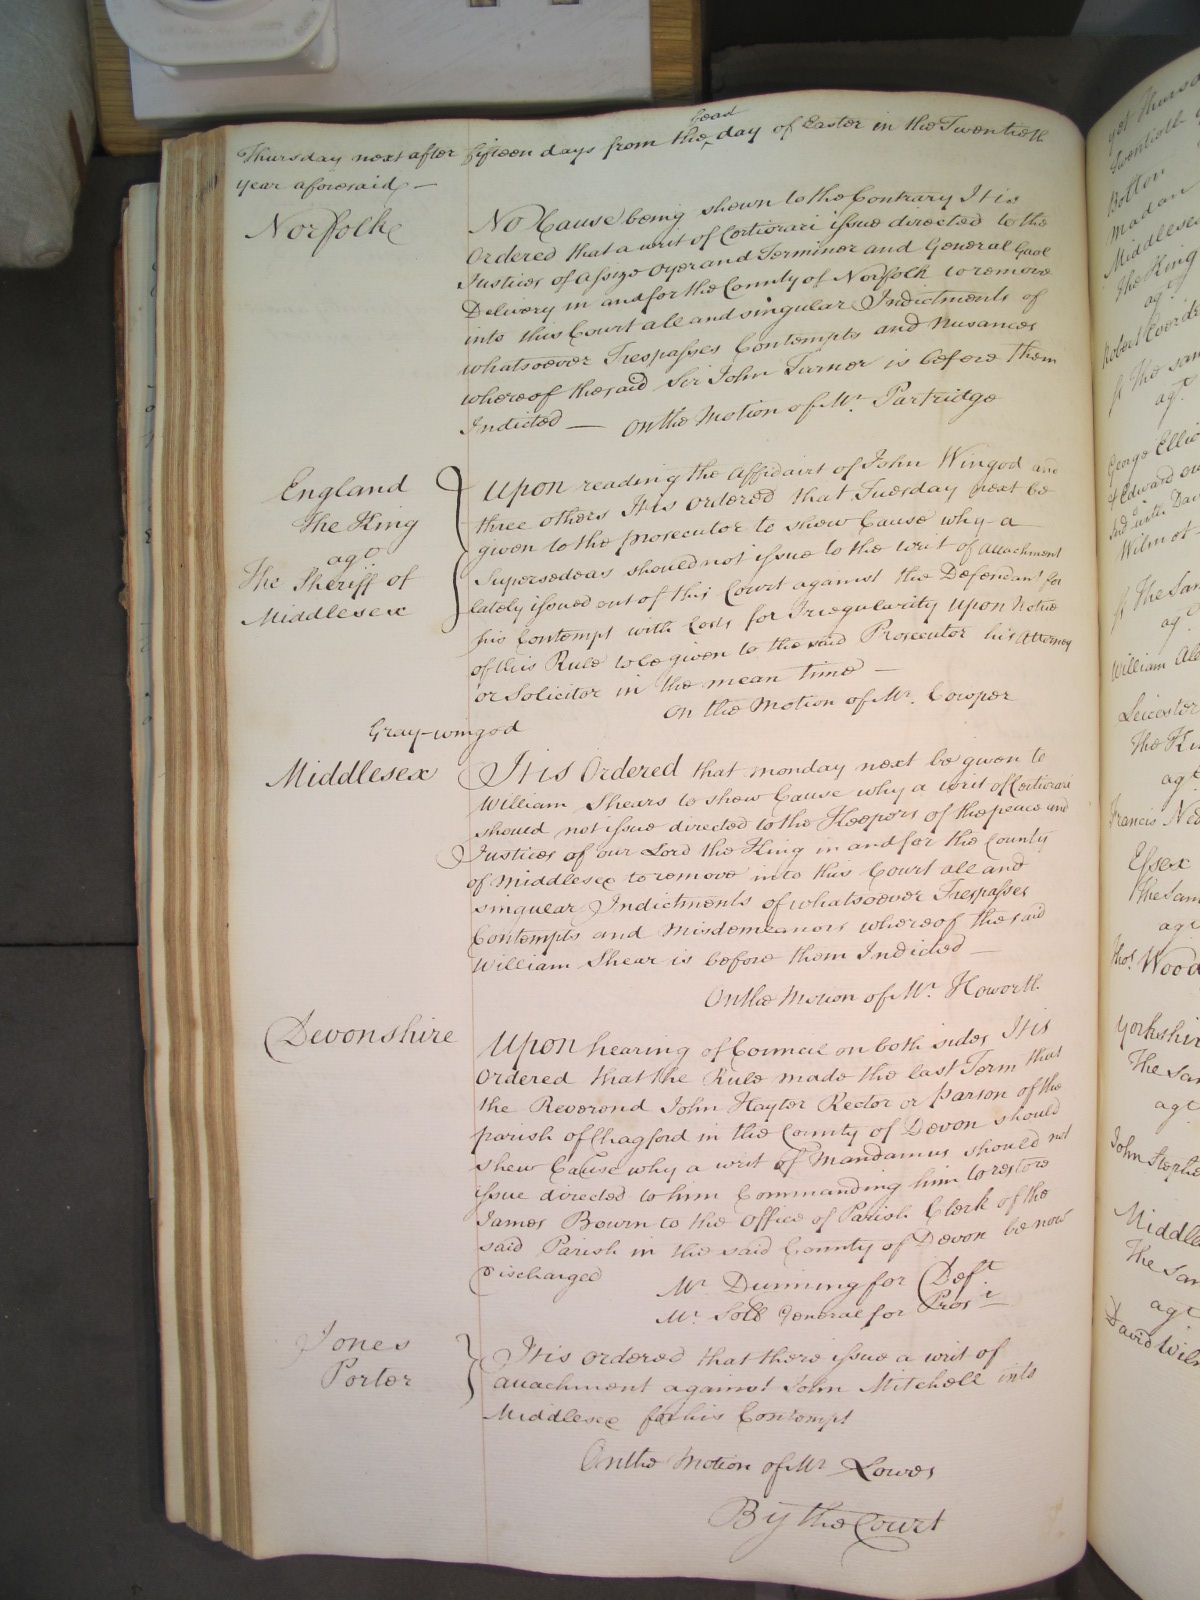 feast
Thursday next after fifteen days from the day of Easter in the Twentieth
year aforesaid —
Norfolk
No Cause being shown to the Contrary It is
Ordered that a writ of Certiorari issue directed to the
Justices of Assize Oyer and Terminer and General Gaol
Delivery in and for the County of Norfolk to remove
into this Court all and singular Indictments of
whatsoever Trespasses Contempts and Nusances
whereof the said Sir John Turner is before them
Indicted — On the Motion of Mr. Partridge
England
The King
agt
The Sheriff of
Middlesex
Upon reading the Affidavit of John Wingod and
three others It is ordered that Tuesday next be
given to the prosecutor to shew Cause why a
Supersedeas should not issue to the writ of attachment
lately issued out of this Court against the Defendant for
his Contempt with Costs for Irregularity Upon Notice
of this Rule to be given to the said Prosecutor his Attorney
or Solicitor in the mean time —
On the Motion of Mr. Cowper
Gray-wingod
Middlesex
It is Ordered that monday next be given to
William Shears to shew Cause why a writ of Certiorari
should not issue directed to the Keepers of the peace and
Justices of our Lord the King in and for the County
of Middlesex to remove into this Court all and
singular Indictments of whatsoever Trespasses
Contempts and Misdemeanors whereof the said
William Shear is before them Indicted —
On the Motion of Mr. Howorth
Devonshire
Upon hearing of Council on both sides It is
Ordered that the Rule made the last Term that
the Reverend John Hayter Rector or Parson of the
parish of Chagford in the County of Devon should
shew Cause why a writ of Mandamus should not
issue directed to him Commanding him to restore
James Bown to the Office of Parish Clerk of the
said Parish in the said County of Devon be now
discharged
Mr. Dunning for Deft.
Mr. Soll General for Prosr
Jones
Porter
It is ordered that there issue a writ of
attachment against John Mitchell into
Middlesex for his Contempt
On the Motion of Mr Lowes
By the Court
Botton
Madan
Middlesex
The King
agt
Robert
fr The same
agt
George
& Edward
Wilmot
fr The Same
agt
William
Leicester
The King
agt
Francis
Essex
The Same
agt
Thos. Wood
Yorkshire
The Same
agt
John
Middlesex
The Same
agt
David